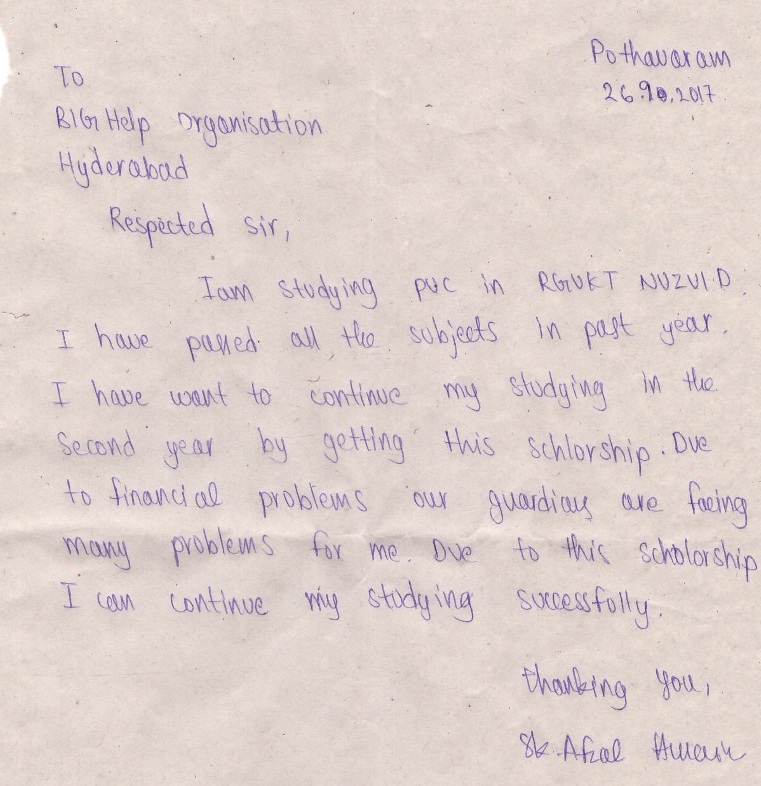 Pothavaram
26.10.2017
To
BIG Help Organisation
Hyderabad
Respected sir,
Iam studying puc in RGUKT NUZVID.
I have passed all the subjects in past year.
I have want to continue my studying in the
Second year by getting this schlorship. Due
to financial problems our guardians are facing
many problems for me. Due to this scholorship
I can continue my studying successfully.
thanking you,
Sk. Afzal